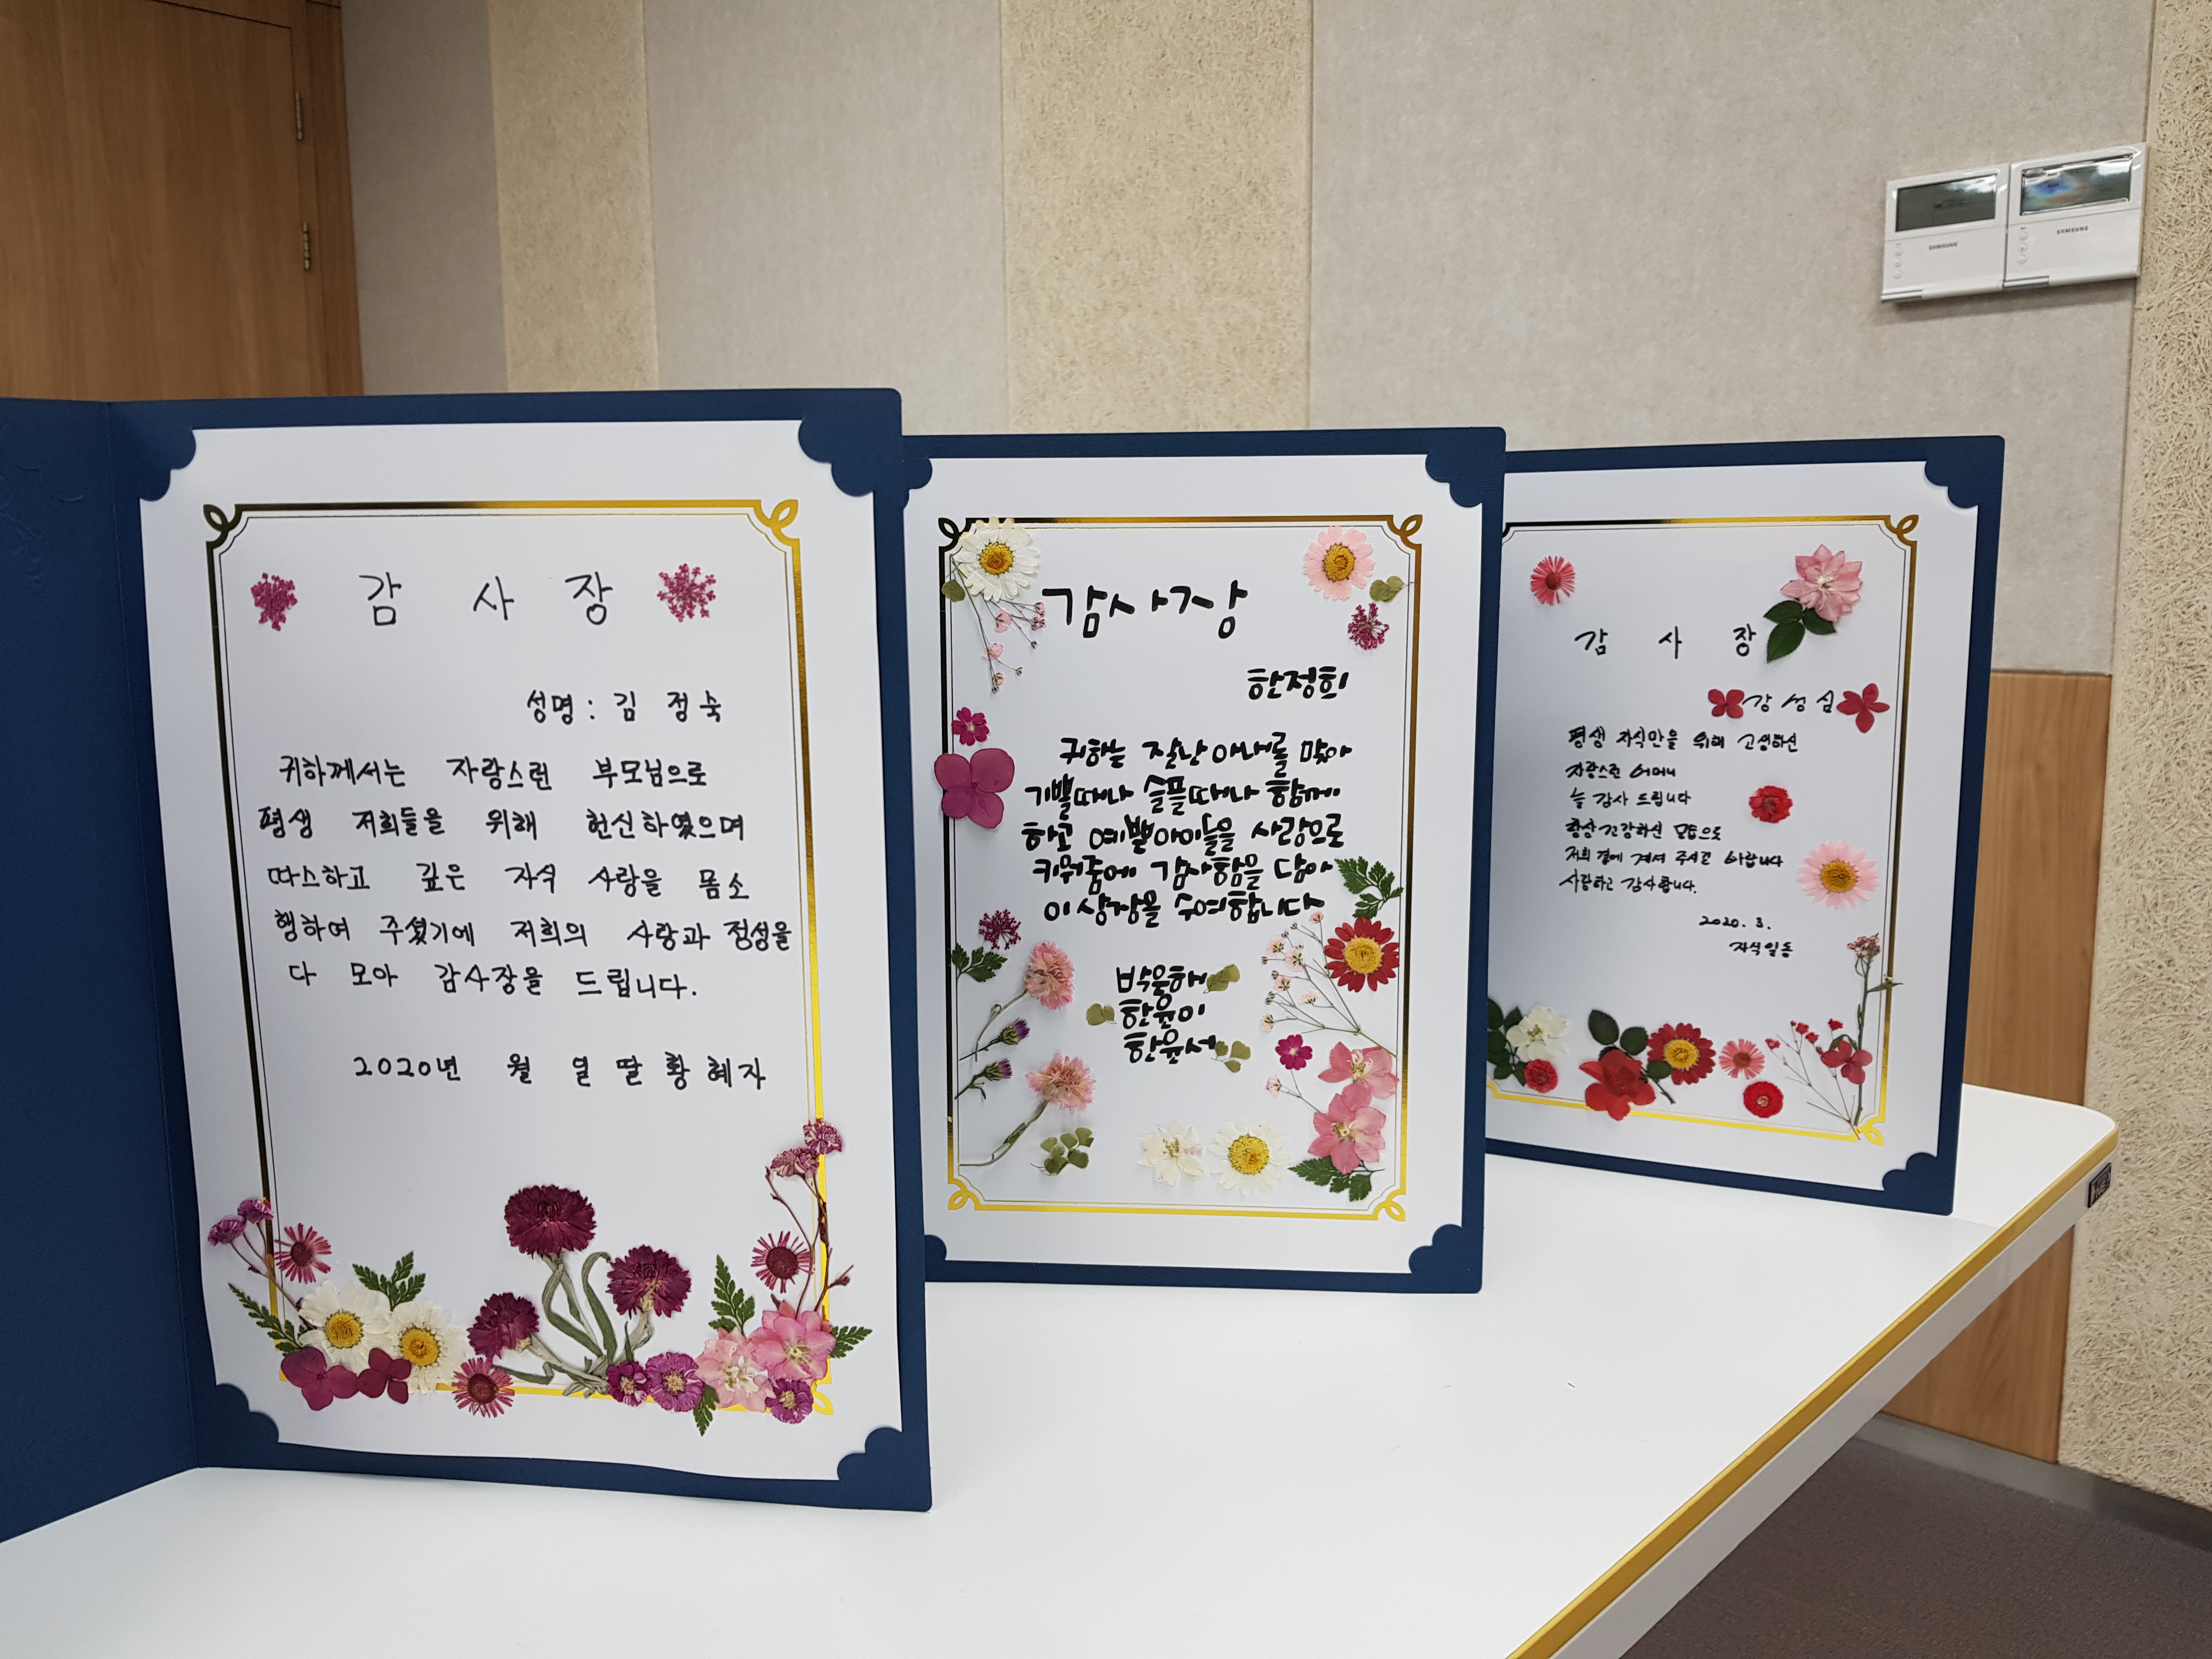 감 사 장
성명 : 김 정 숙
귀하께서는 자랑스런 부모님으로
평생 저희들을 위해 헌신하였으며
따스하고 깊은 자식 사랑을 몸소
행하여 주셨기에 저희의 사랑과 정성을
다 모아 감사장을 드립니다.
2020년 월 일 딸 황혜자
감사장
한정희
귀하는 잘난아내를 맞아
기쁠때나 슬플때나 함께
하고 예쁜아이들을 사랑으로
키워줌에 감사함을 담아
이상장을 수여합니다
박윤해
한윤이
한윤서
감 사 장
강성심
평생 자식만을 위해 고생하신
자랑스런 어머니
늘 감사 드립니다
항상건강하신 모습으로
저희 곁에 계셔 주시고 바랍니다
사랑하고 감사합니다.
2020. 3.
자식일동
SAMSUNG
SAMSUNG